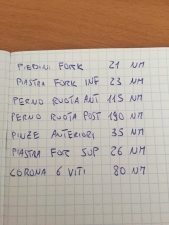 PIEDINI FORK 21 NM
PIASTRA FORK INF 23 NM
PERNO RUOTA ANT 115 NM
PERNO RUOTA POST 190 NM
PINZE ANTERIORI 35 NM
PIASTRA FOR SUP 26 NM
CORONA 6 VITI 80 NM